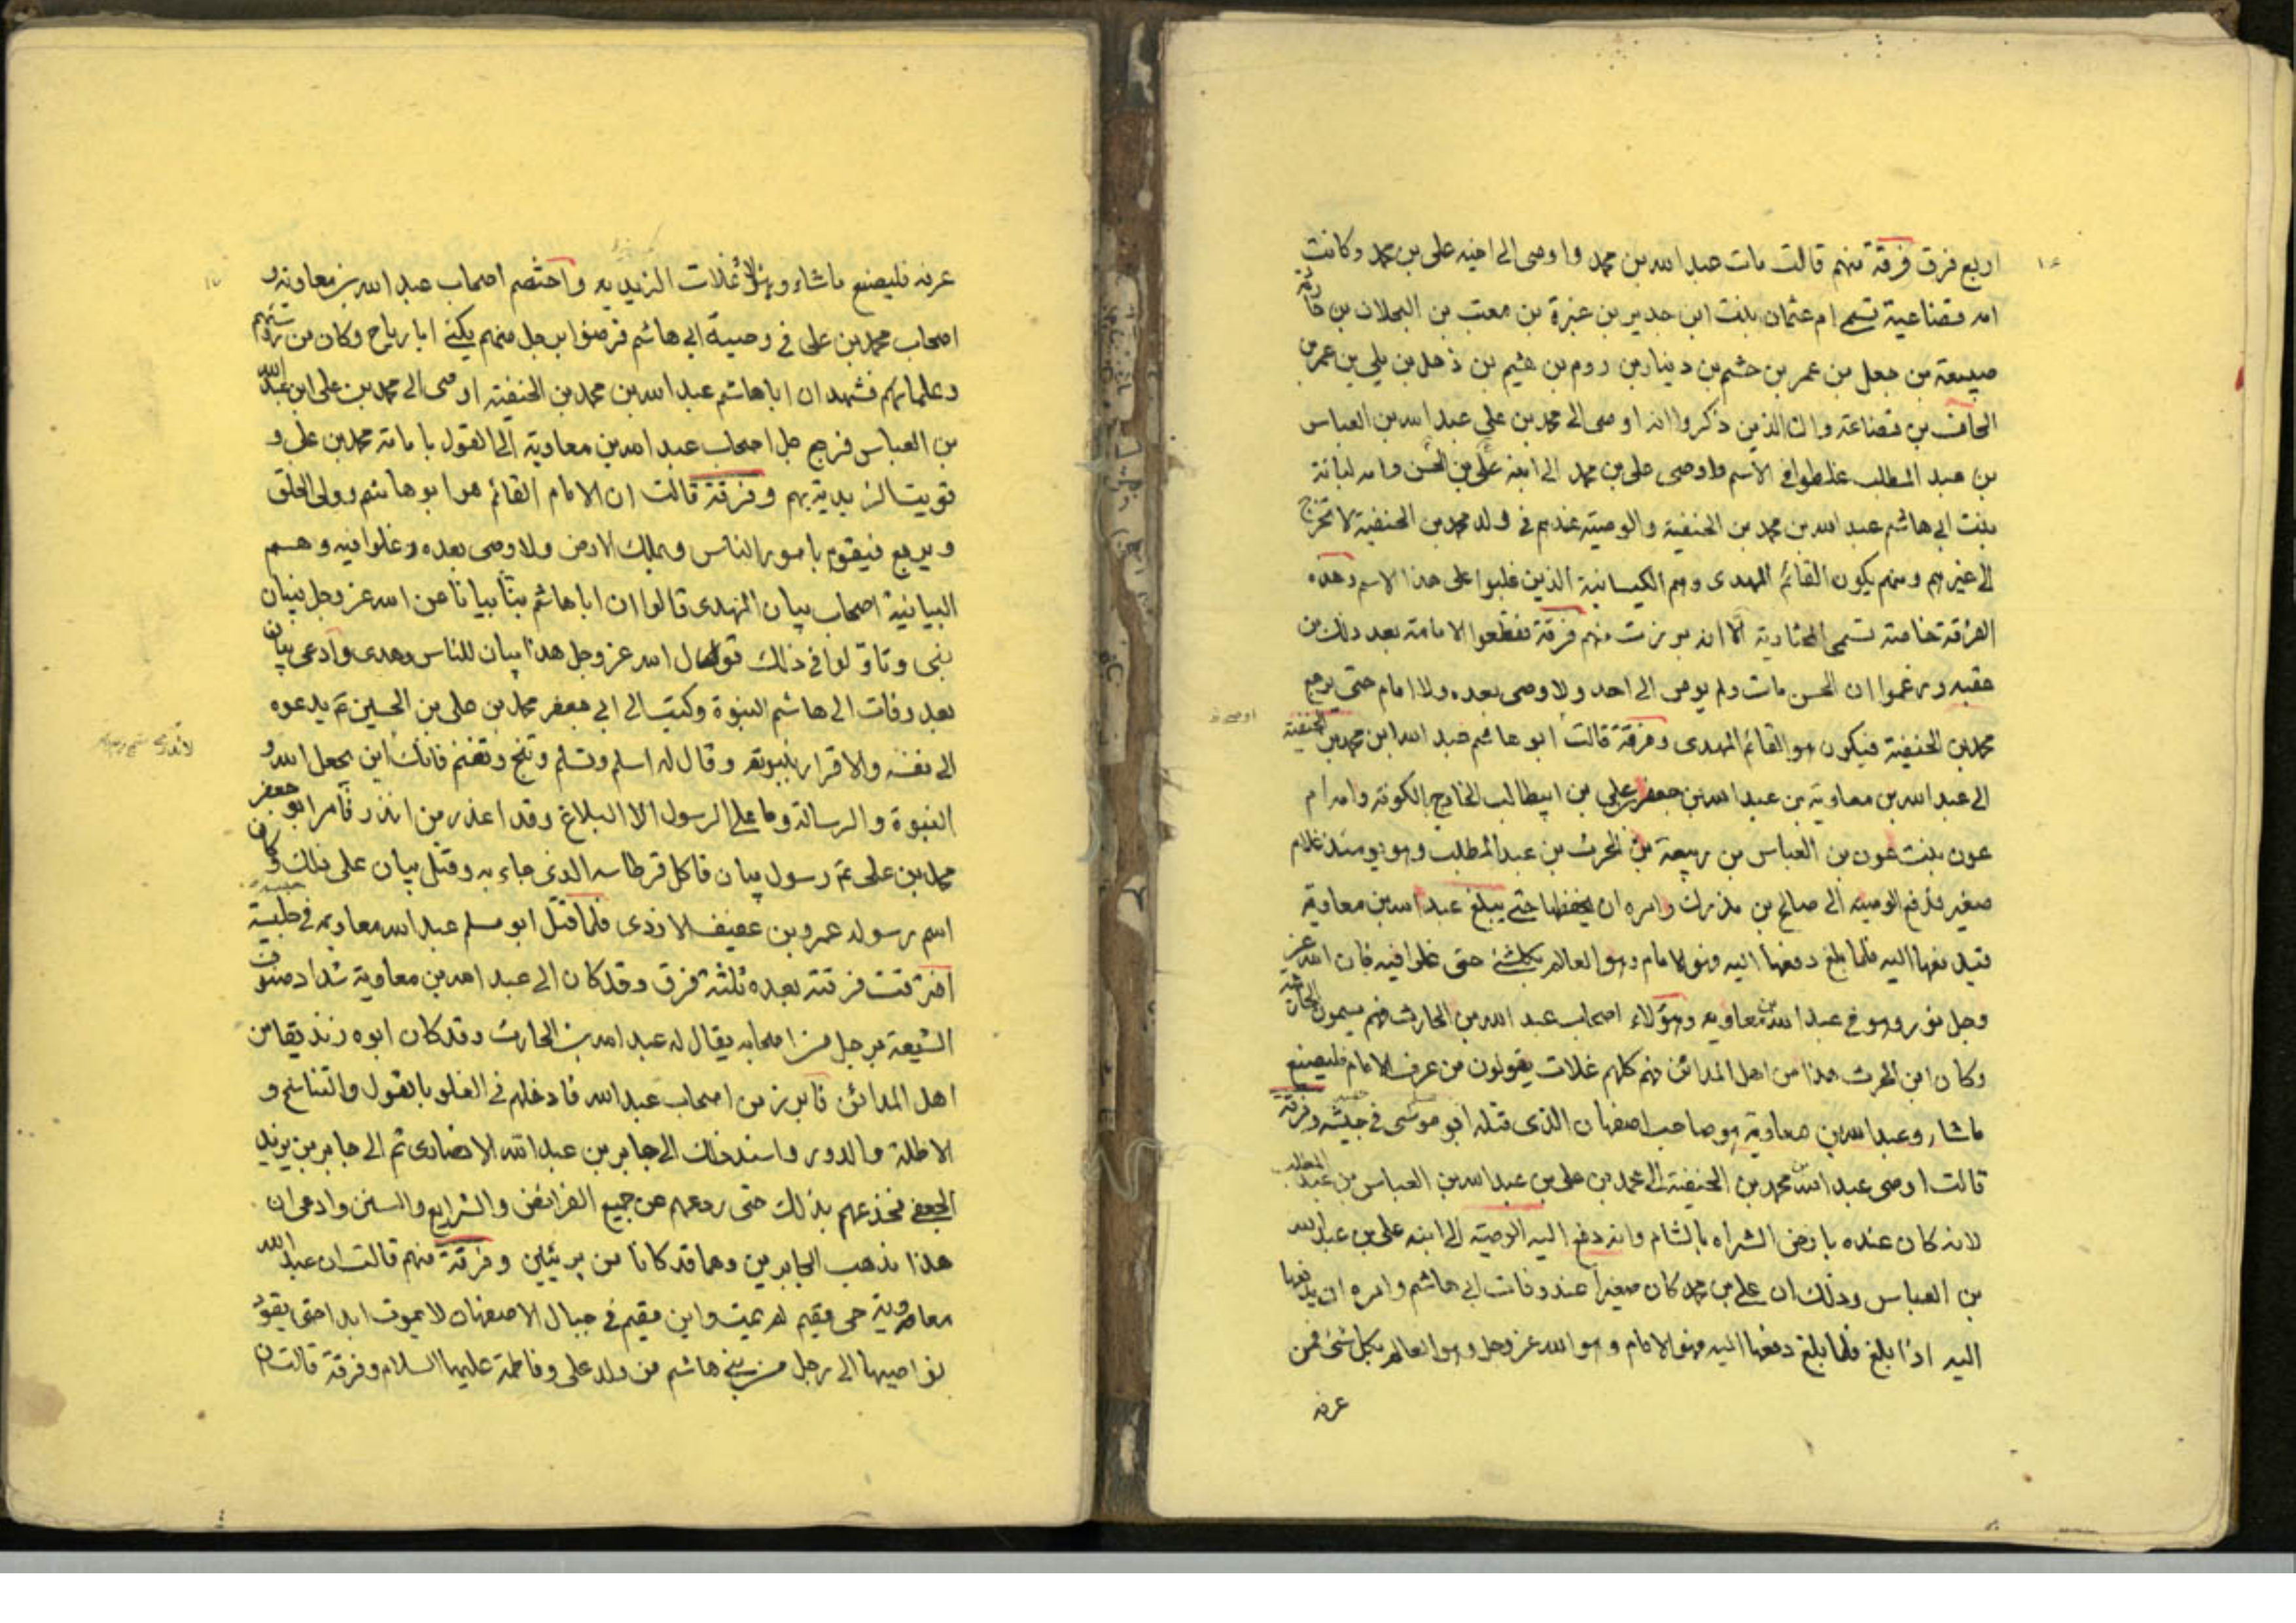 اربع فرق فرقة منهم قالت مات عبد الله بن محمد واوصى الى اخيه على بن محمد وكانت
امه قضاعية تسمى ام عثمان بنت ابن جدير بن عبرة بن معتب بن العجلان بن حارثة
ضبيعة بن جعل بن عمر بن جشم بن دينار بن روم بن هثيم بن ذهل بن بلى بن عمر بن
الحاف بن قضاعة وان الذين ذكروا انه اوصى الى محمد بن على عبد الله بن العباس
بن عبد المطلب غلطوا فى الاسم واوصى على بن محمد الى ابنه على بن الحسن وامه لبانة
بنت ابى هاشم عبد الله بن محمد بن الحنفية والوصية عندهم فى ولد محمد بن الحنفية لا تخرج
الى غيرهم ومنهم يكون القائم المهدى وهم الكيسانية الذين غلبوا على هذا الاسم وهذه
الفرقة خاصة تسمى المختارية الا انه بورزت منهم فرقة فقطعوا الامامة بعد ذلك من
عقبه وزعموا ان الحسن مات ولم يوص الى احد ولا وصى بعده ولا امام حتى يرجع
اوصى
محمد بن الحنفية فيكون هو القائم المهدى وفرقة قالت ابو هاشم عبد الله ابن محمد بن الحنفية
الى عبد الله بن معاوية بن عبد الله بن جعفر بن على بن ابيطالب الخارج بالكوفة وامه ام
عون بنت عون بن العباس بن ربيعة بن الحرث بن عبد المطلب وهو يومئذ غلام
صغير فدفع الوصية الى صالح بن مدرك وامره ان يحفظها حتى يبلغ عبد الله بن معاوية
فيدفعها اليه فلما بلغ دفعها اليه وهو الامام وهو العالم بكل شئ حتى غلوا فيه فان الله عز
وجل نور وهو فى عبد الله بن معاوية وهؤلاء اصحاب عبد الله بن الحارث فهم يسمون الحارثية
وكان ابن الحرث هذا من اهل المدائن فهم كلهم غلات يقولون من عرف الامام فليصنع
ما شاء وعبد الله بن معاوية هو صاحب اصفهان الذى قتله ابو موسى فى جيشه وفرقة
قالت اوصى عبد الله بن محمد بن الحنفية الى محمد بن على بن عبد الله بن العباس بن عبد المطلب
لانه كان عنده بارض الشراه بالشام وانه دفع اليه الوصية الى ابنه على بن عبد الله
بن العباس وذلك ان على بن محمد كان صغيرا عند وفات ابى هاشم وامره ان يدفعها
اليه اذا بلغ فلما بلغ دفعها اليه وهو الامام وهو الله عز وجل وهو العالم بكل شئ فمن
عرفه
عرفه فليصنع ما شاء وهؤلاء غلات الزيديه واختصم اصحاب عبد الله بن معاوية و
اصحاب محمد بن على فى وصية ابى هاشم فرضوا برجل منهم يكنى ابا رياح وكان من رؤسائهم
وعلمائهم فشهد ان ابا هاشم عبد الله بن محمد بن الحنفية اوصى الى محمد بن على ابن عبد الله
بن العباس فرجع جل اصحاب عبد الله بن معاوية الى القول بامامة محمد بن على و
قويت الزيدية بهم وفرقة قالت ان الامام القائم هو ابو هاشم وولى الخلق
ويرجع فيقوم بامور الناس ويملك الارض ولا وصى بعده وغلوا فيه وهم
البيانية اصحاب بيان النهدى قالوا ان ابا هاشم نبأ بيانا عن الله عز وجل فبيان
نبى وتاولوا فى ذلك قول الله عز وجل هذا بيان للناس وهدى وادعى بيان
بعد وفات ابى هاشم النبوة وكتب الى ابى جعفر محمد بن على بن الحسين ع يدعوه
الى نفسه والاقرار بنبوته وقال له اسلم وتسلم وتنج وتغنم فانك اين يجعل الله و
النبوة والرسالة وما على الرسول الا البلاغ وقد اعذر من انذر فامر ابو جعفر
محمد بن على ع رسول بيان فاكل قرطاسه الذى جاء به وقتل بيان على ذلك وكان
اسم رسوله عمرو بن عفيف الازدى فلما قتل ابو مسلم عبد الله معاويه فى حبسه
افترقت فرقته بعده ثلثة فرق وقد كان الى عبد الله بن معاوية شداد صنوف
الشيعة برجل من اصحابه يقال له عبد الله بن الحارث وقد كان ابوه زنديقا من
اهل المدائن فابرز من اصحاب عبد الله فادخلهم فى الغلو بالقول والتناسخ و
الاظلة والدور واسند ذلك الى جابر بن عبد الله الانصارى ثم الى جابر بن يزيد
الجعفى فخدعهم بذلك حتى ردعهم عن جميع الفرائض والشرايع والسنن وادعى ان
هذا مذهب الجابرين وهما قد كانا من بريئين وفرقة منهم قالت ان عبد الله
معاوية حى مقيم لم يمت واين مقيم فى جبال الاصفهان لا يموت ابدا حتى يقود
نواصيها الى رجل من بنى هاشم من ولد على وفاطمة عليهما السلام وفرقة قالت ان